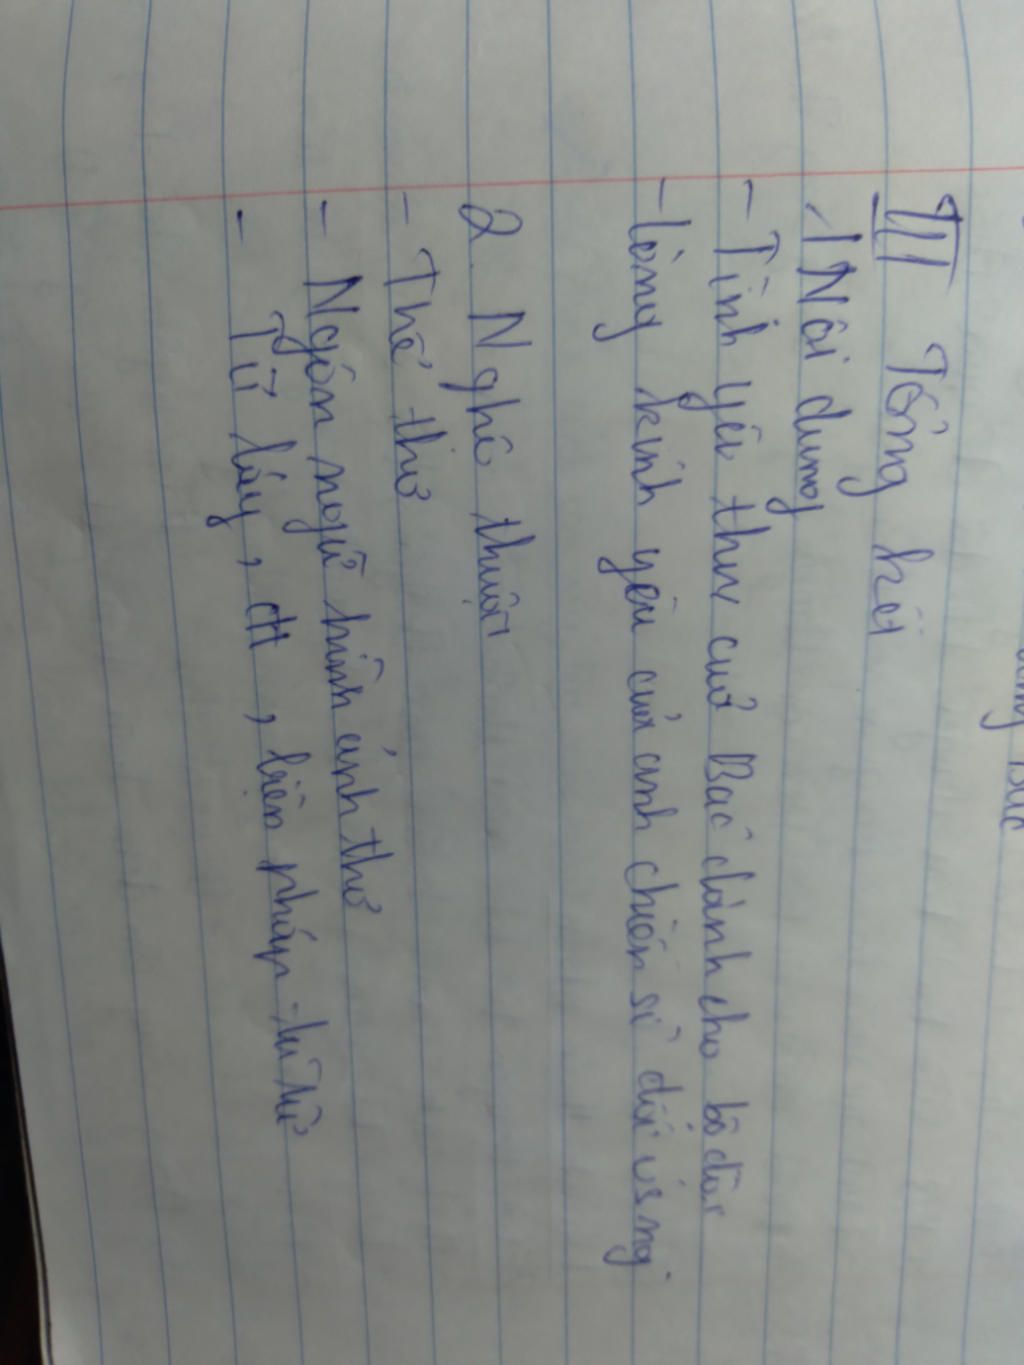 III Tổng kết
1 Nội dung
- Tình yêu thư của Bác dành cho bộ đội
- lòng kính yêu của anh chiến sĩ đối với ng
2. Nghệ thuật
- Thể thơ
- Ngôn ngữ hình ảnh thơ
- Từ láy, , biện pháp tu từ